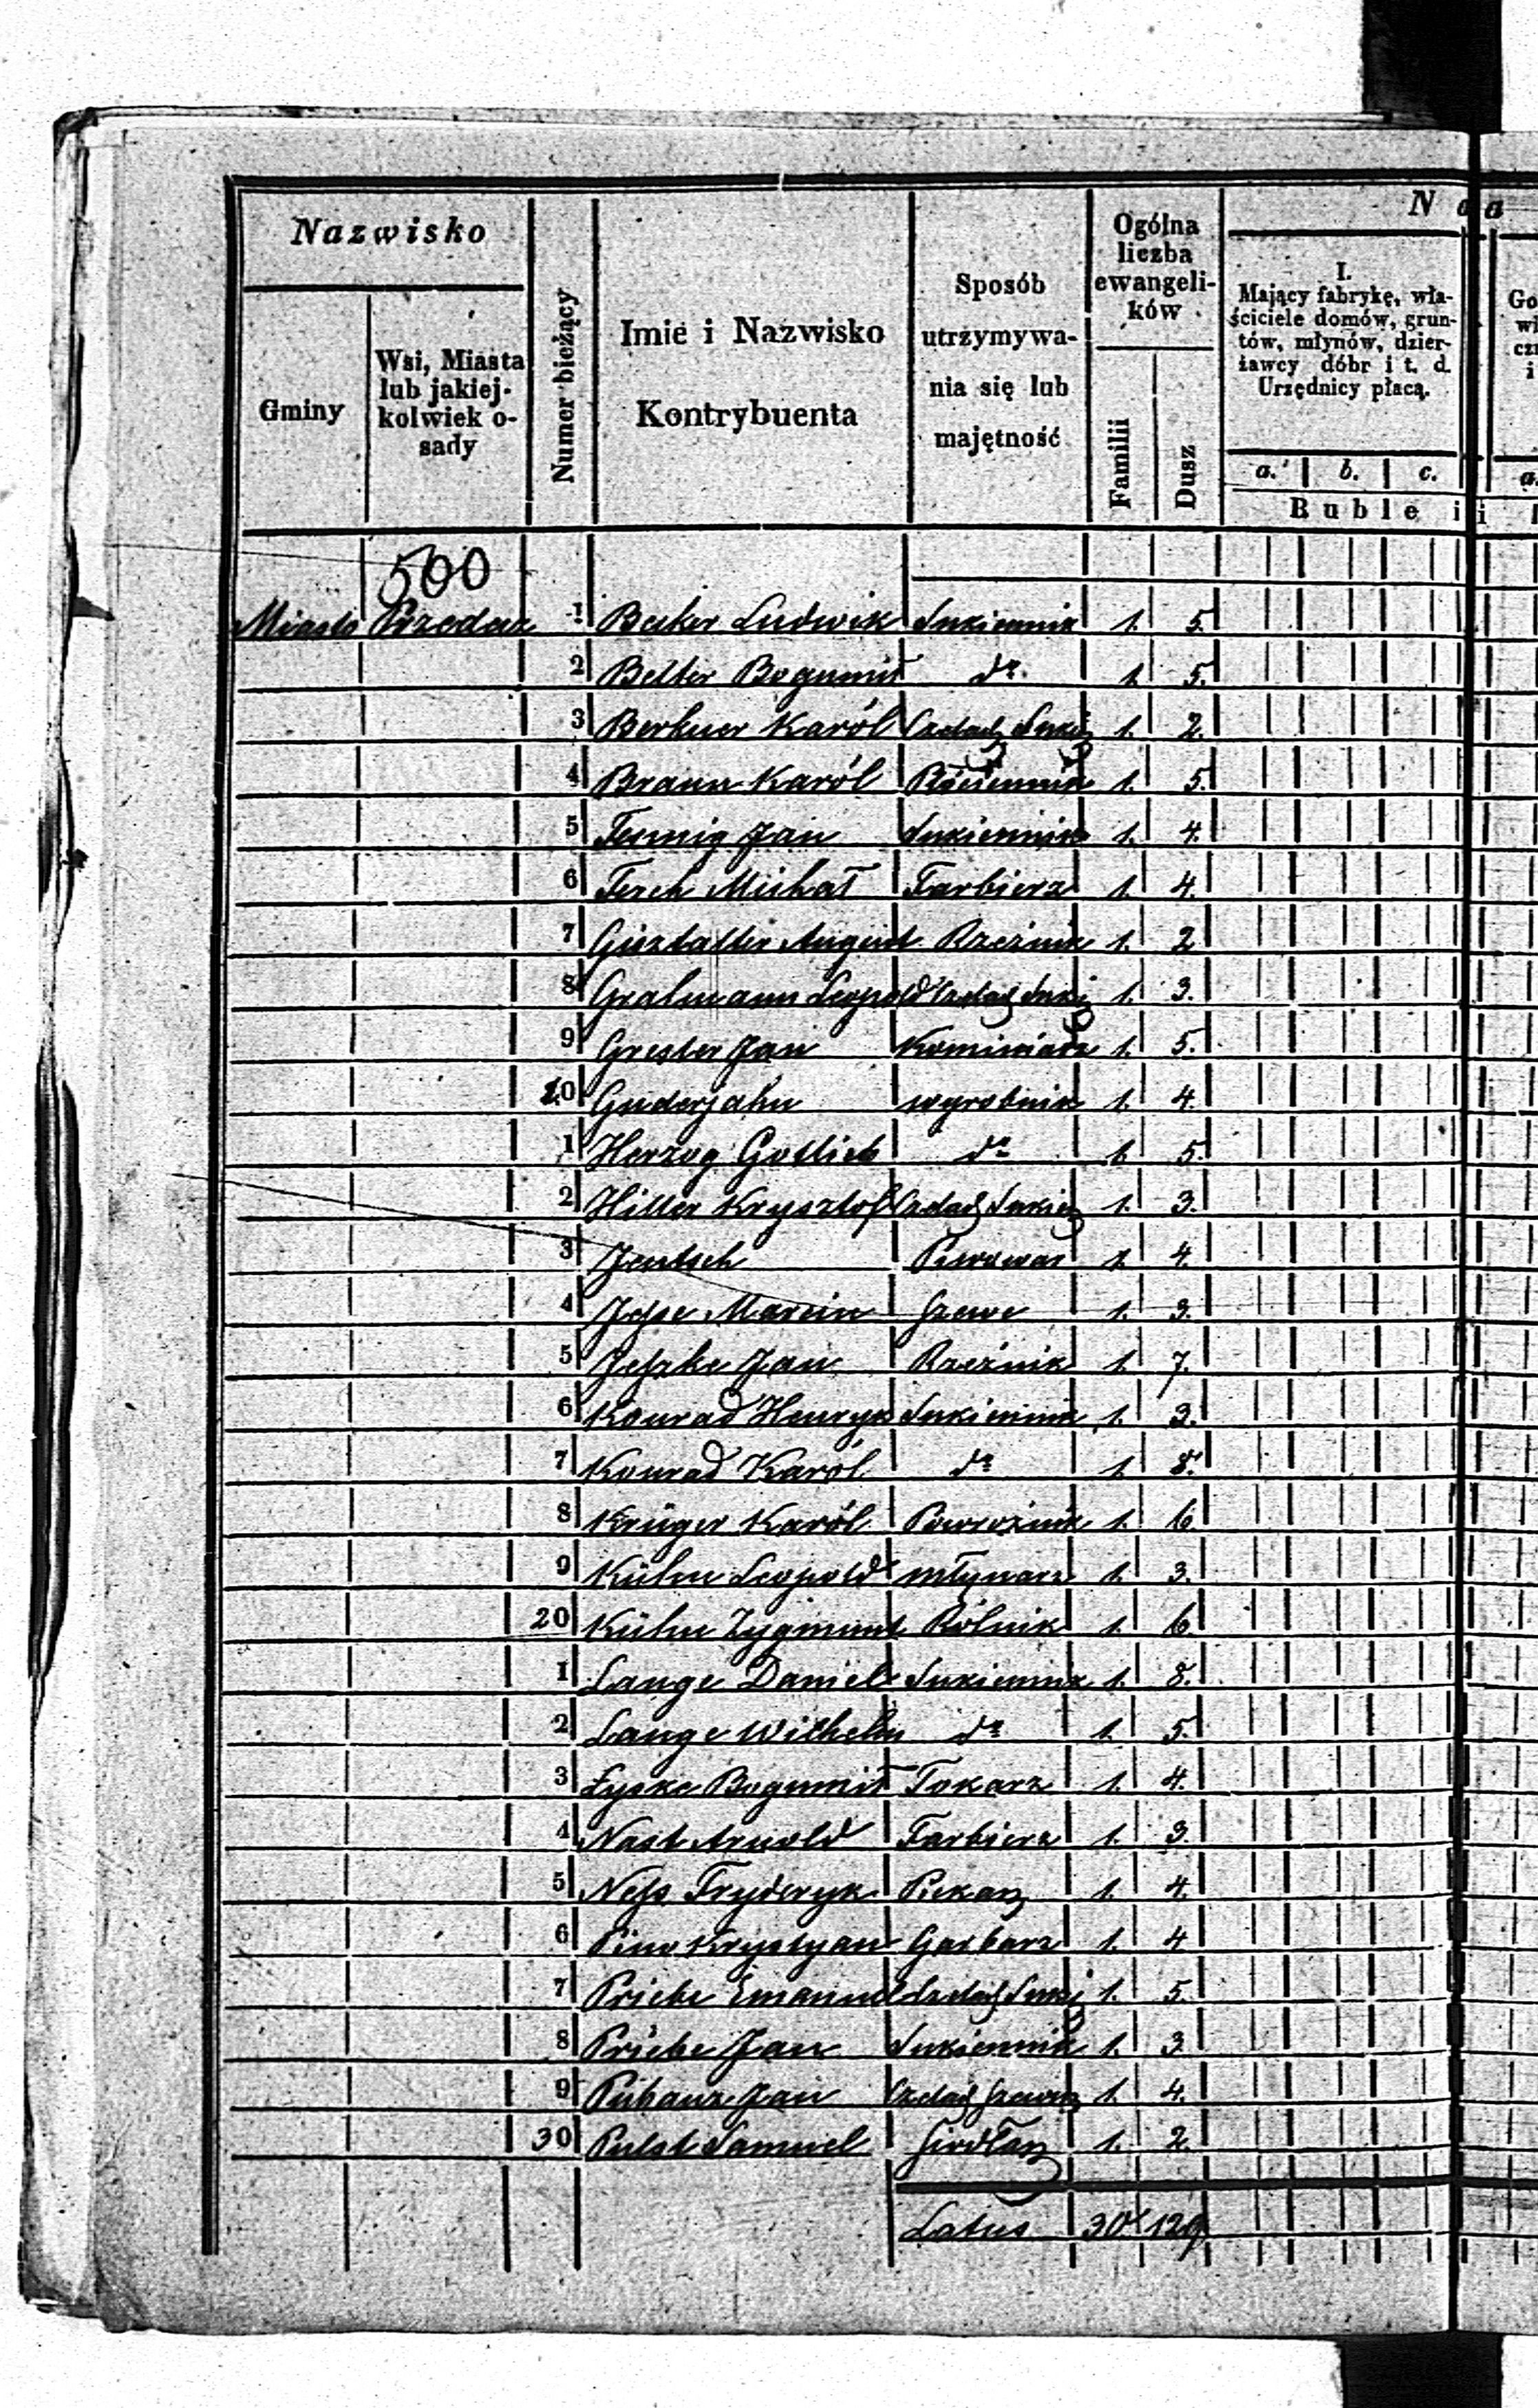 Nazwisko
Gminy
Wsi, Miasta
lub jakiej-
kolwiek o-
sady
Numer bieżący
Imie i Nazwisko
Kontrybuenta
Sposób
utrzymywa-
nia się lub
majętność
Ogólna
liczba
ewangeli-
ków
Familii
Dusz
N a
I.
Mający fabrykę, wła-
ściciele domów, grun-
tów, młynów, dzier-
żawcy dóbr i t. d.
Urzędnicy płacą.
a. b. c.
Ruble i
500
Miasto Przedecz 1 Becker Ludwik Sukiennik 1. 5.
2 Belter Bogumił do 1. 5.
3 Berkner Karól Czeladź Sukie 1. 2.
4 Braun Karól Płóciennik 1. 5.
5 Fennig Jan Sukiennik 1. 4.
6 Ferch Michał Farbierz 1. 4.
7 August Rzeźnik 1. 2
8 Gralmann Leopold Czeladź Suki 1. 3.
9 Grester Jan Kominiarz 1. 5.
10 Guderjahn wyrobnik 1. 4.
1 Herzog Gottlieb do 1. 5.
2 Hiller Krysztof Czeladź Sukien 1. 3.
3 Jentsch Piwowar 1. 4.
4 Jesse Marcin Szewc 1. 3.
5 Jeszke Jan Rzeźnik 1. 7.
6 Konrad Henryk Sukiennik 1. 3.
7 Konrad Karól do 1. 8.
8 Krüger Karól Powroźnik 1. 6.
9 Kühn Leopold młynarz 1. 3.
20 Kühn Zygmunt Rólnik 1. 6
1 Lange Daniel Sukiennik 1. 8.
2 Lange Wilhelm do 1. 5.
3 Łyske Bogumił Tokarz 1. 4.
4 Nast Arnold Farbierz 1. 3.
5 Ness Fryderyk Piekarz 1. 4.
6 Pino Krystyan Garbarz 1. 4
7 Priebe Emanuel Czeladź Suki 1. 5.
8 Priebe Jan Sukiennik 1. 3
9 Pubanz Jan Czeladź Szewc 1. 4.
30 Pulst Samuel Siodłarz 1. 2.
Latus 30 129